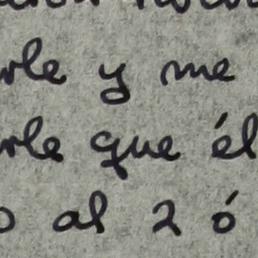 rle y me
rle que él
o al 2 ó